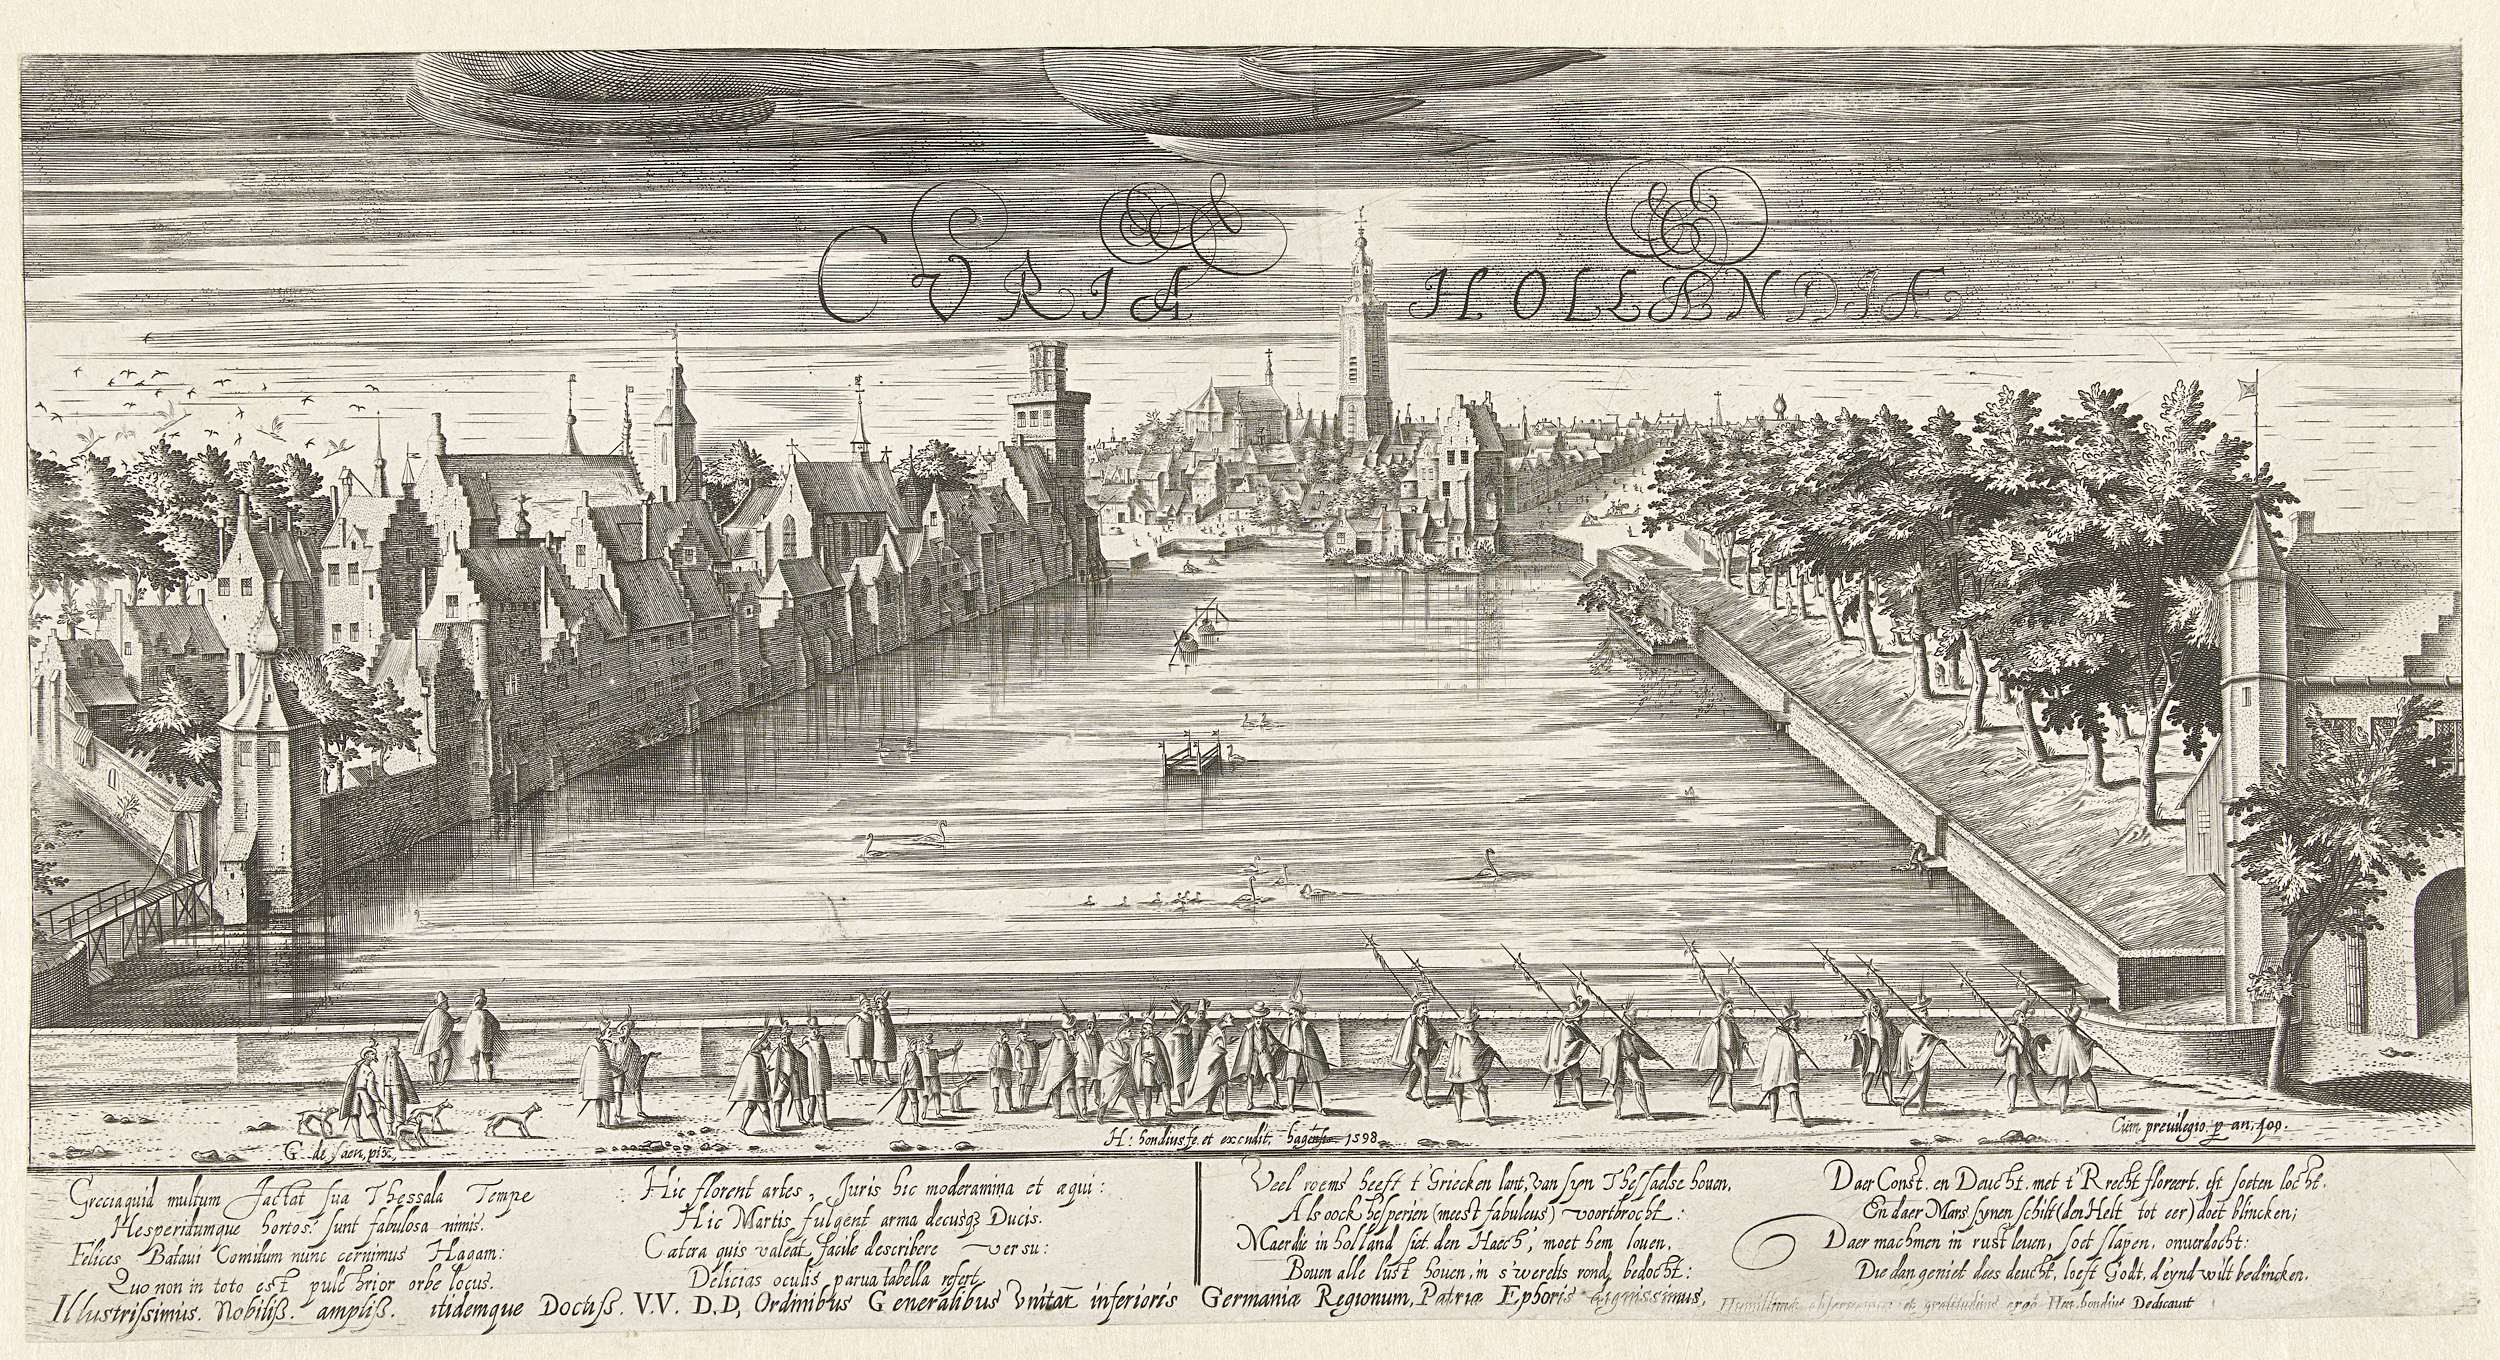 CVRIA HOLLANDIÆ
G. de Saen, pix,
H: hondius fe. et excudit, hagensis 1598
Cum previlegio. p an. 400.
Greciaquid multum Jactat sua Thessala Tempe
Hesperidumque hortos: sunt fabulosa nimis.
Felices Bataui Comitum nunc cernimus Hagam:
Quo non in toto est pulchrior orbe locus.
Hic florent artes, Juris hic moderamina et aequi:
Hic Martis fulgent arma decusq3 Ducis.
Cætera quis valeat facile describere versu:
Delicias oculis parua tabella refert.
Veel roems heeft t'Griecken lant, van syn Thessaelse houen,
Als oock hesperien (meest fabuleus) voortbrocht:
Maer die in holland siet den Haech, moet hem louen,
Bouen alle lust houen, in s'werelts rond bedocht:
Daer Const. en Deucht. met t'Recht floreert, est soeten locht,
En daer Mars synen schilt (den Helt tot eer) doet blincken;
Daer machmen in rust leuen, soet slapen, onverdocht:
Die dan geniet dees deucht, loeft Godt, d'eynd wilt bedincken.
Illustrissimus. Nobiliss. ampliss. itidemque Doctiss. V.V. D.D, Ordinibus Generalibus Vnitar inferioris Germaniæ Regionum, Patriæ Ephoris dignissimus, gratitudinis ergo Hen. hondius Dedicauit